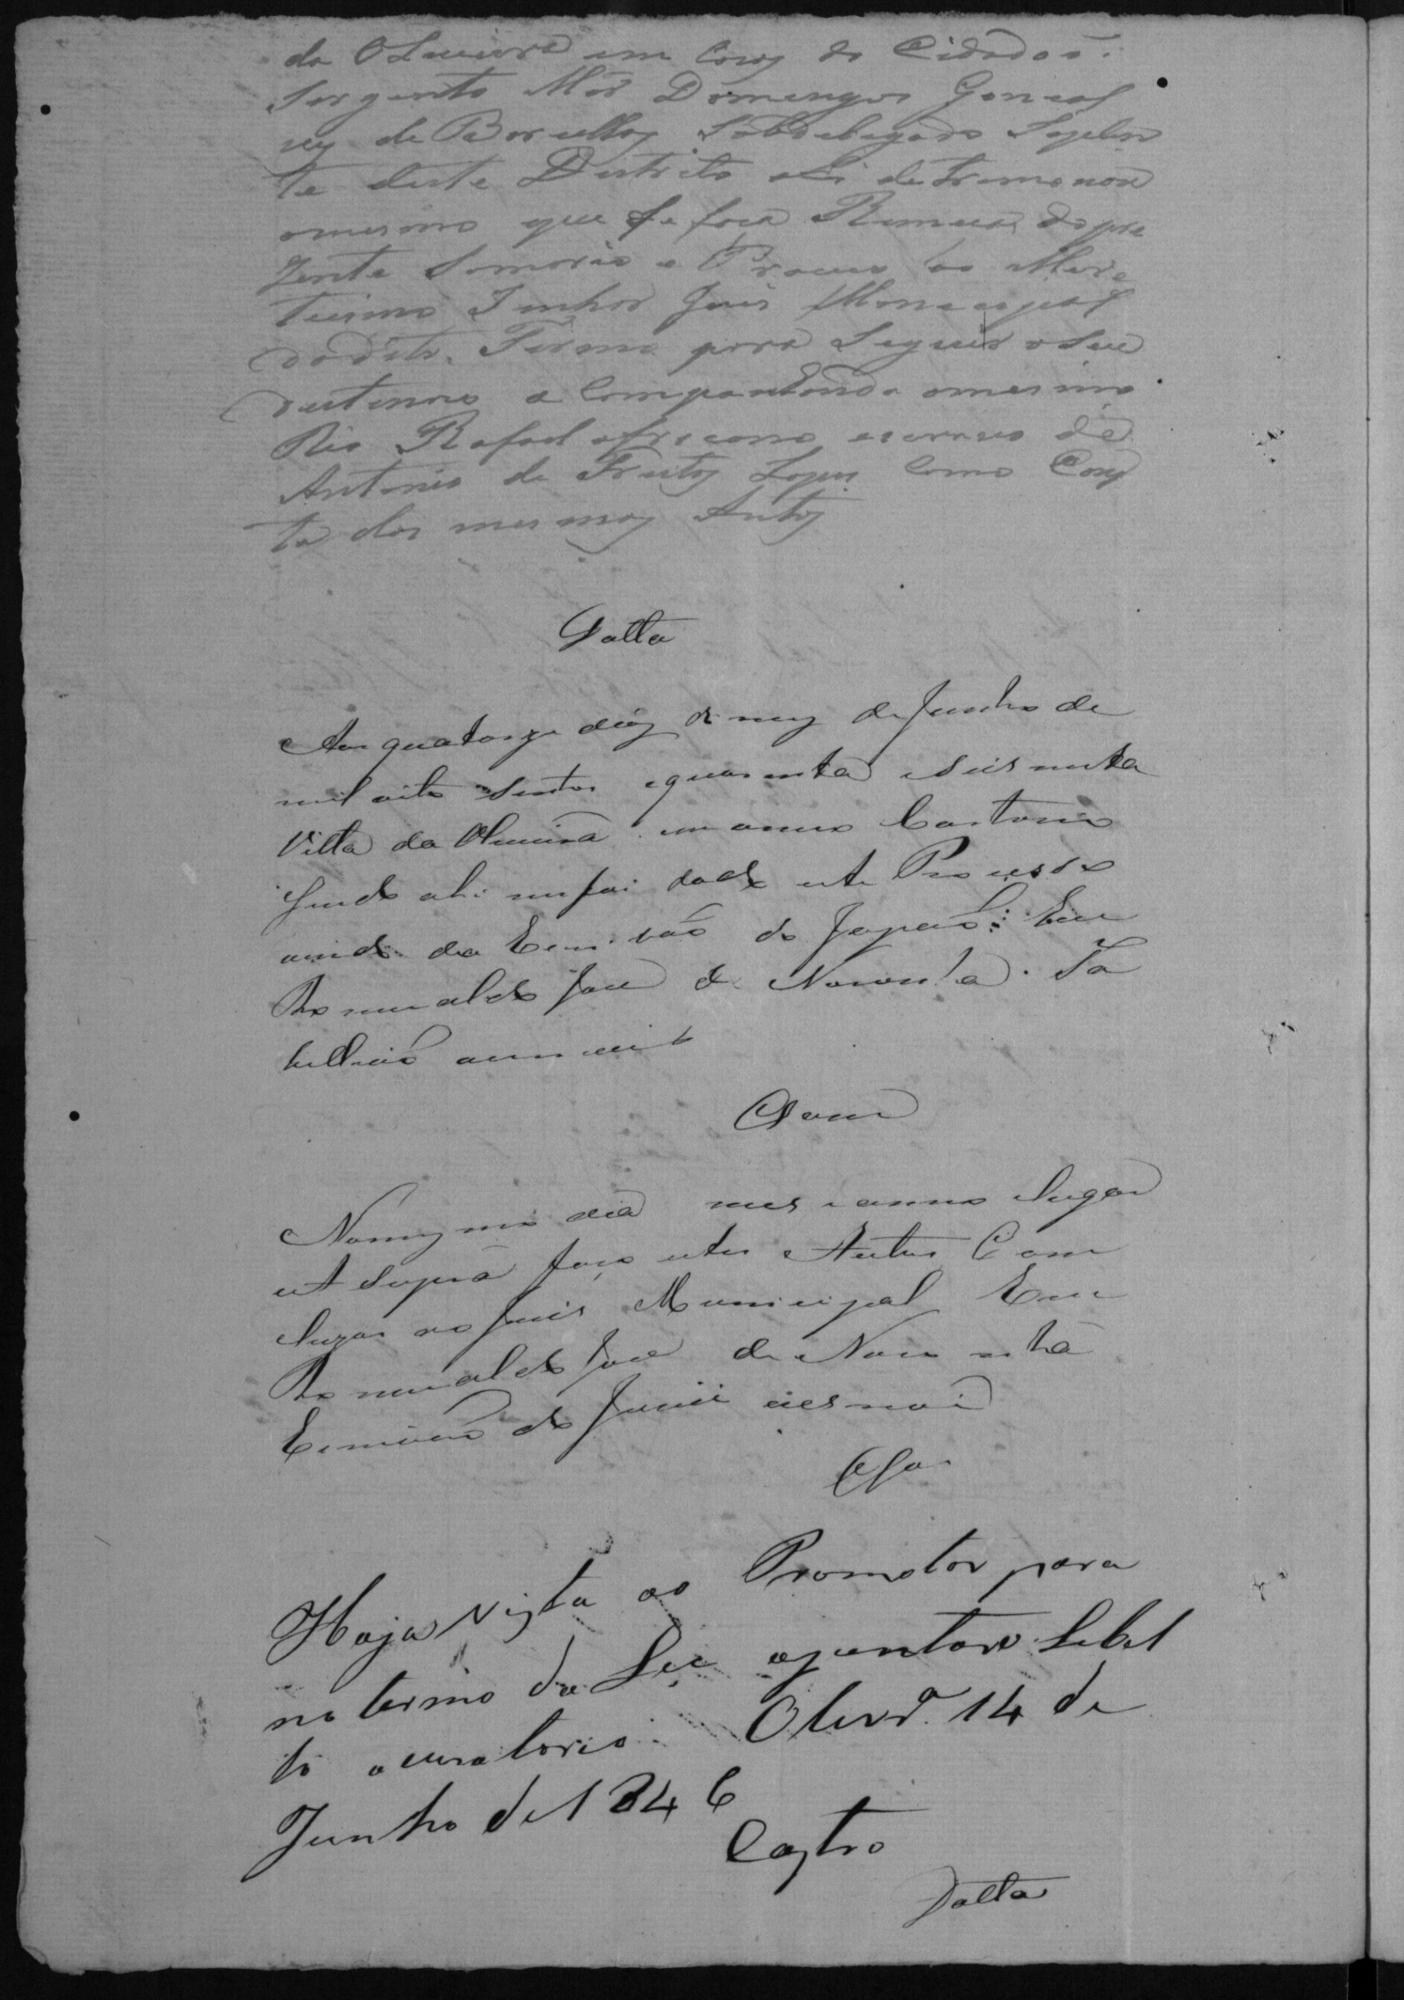 da Oliveira em Cazas do Cidadaõ
Sargento Mór Domingos Gonçal
vez de Barcellos Subdelegado Suplen
te deste Destrito ali determenou
omesmo que se faca Remeça do pre
zente Somario e Proceço ao Mere
tissimo Senhor Juis Monecepal
dodito Termo para Seguir o Seu
destenno a Companhando omesmo
Reo Rafael africano escravo de
Antonio de Freitas Lopes Como Cons
ta dos mesmos Autos
Datta
Aos quatorze dias do mez de Junho de
mil oito sentos e quarenta e seis nesta
Villa da Oliveira em omeo Cartorio
Sendo ahi me foi dado este Processo
vindo do Escrivão do Japaõ: Eu
Romualdo José de Noronha Ta
belliaõ
Nomesmo dia mes e anno e lugar
ut supra faço estes Autos Com
cluzos ao Juis Municipal Eu
Romualdo José de Noronha
Escrivaõ do Jurii escrevi
Clos
Haja vista ao Promotor para
no termo da Lei aprezentar Libel
lo acusatorio. Olivrª 14 de
Junho de 1846
Castro
Datta